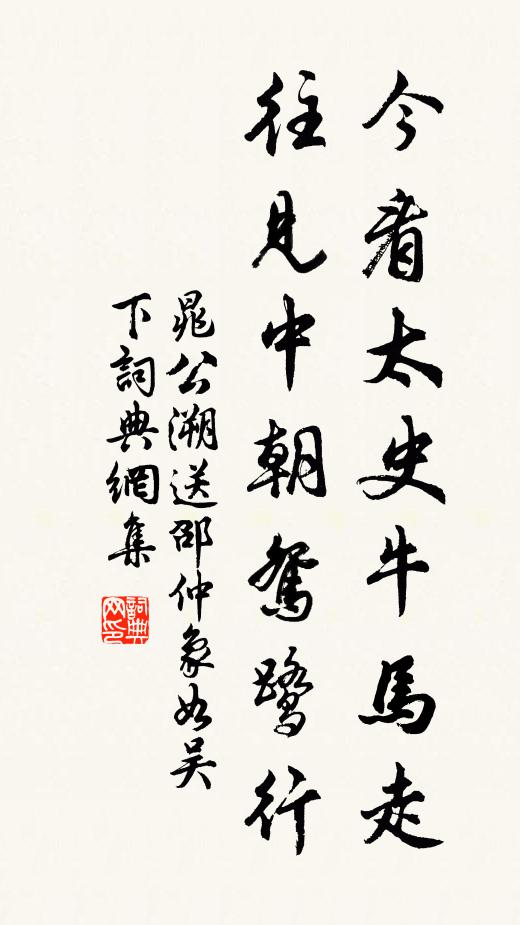 今看太史牛馬走
往見中朝鴛鷺行
晁公溯送邵仲象如吴
下詞典網集
詞典
网印